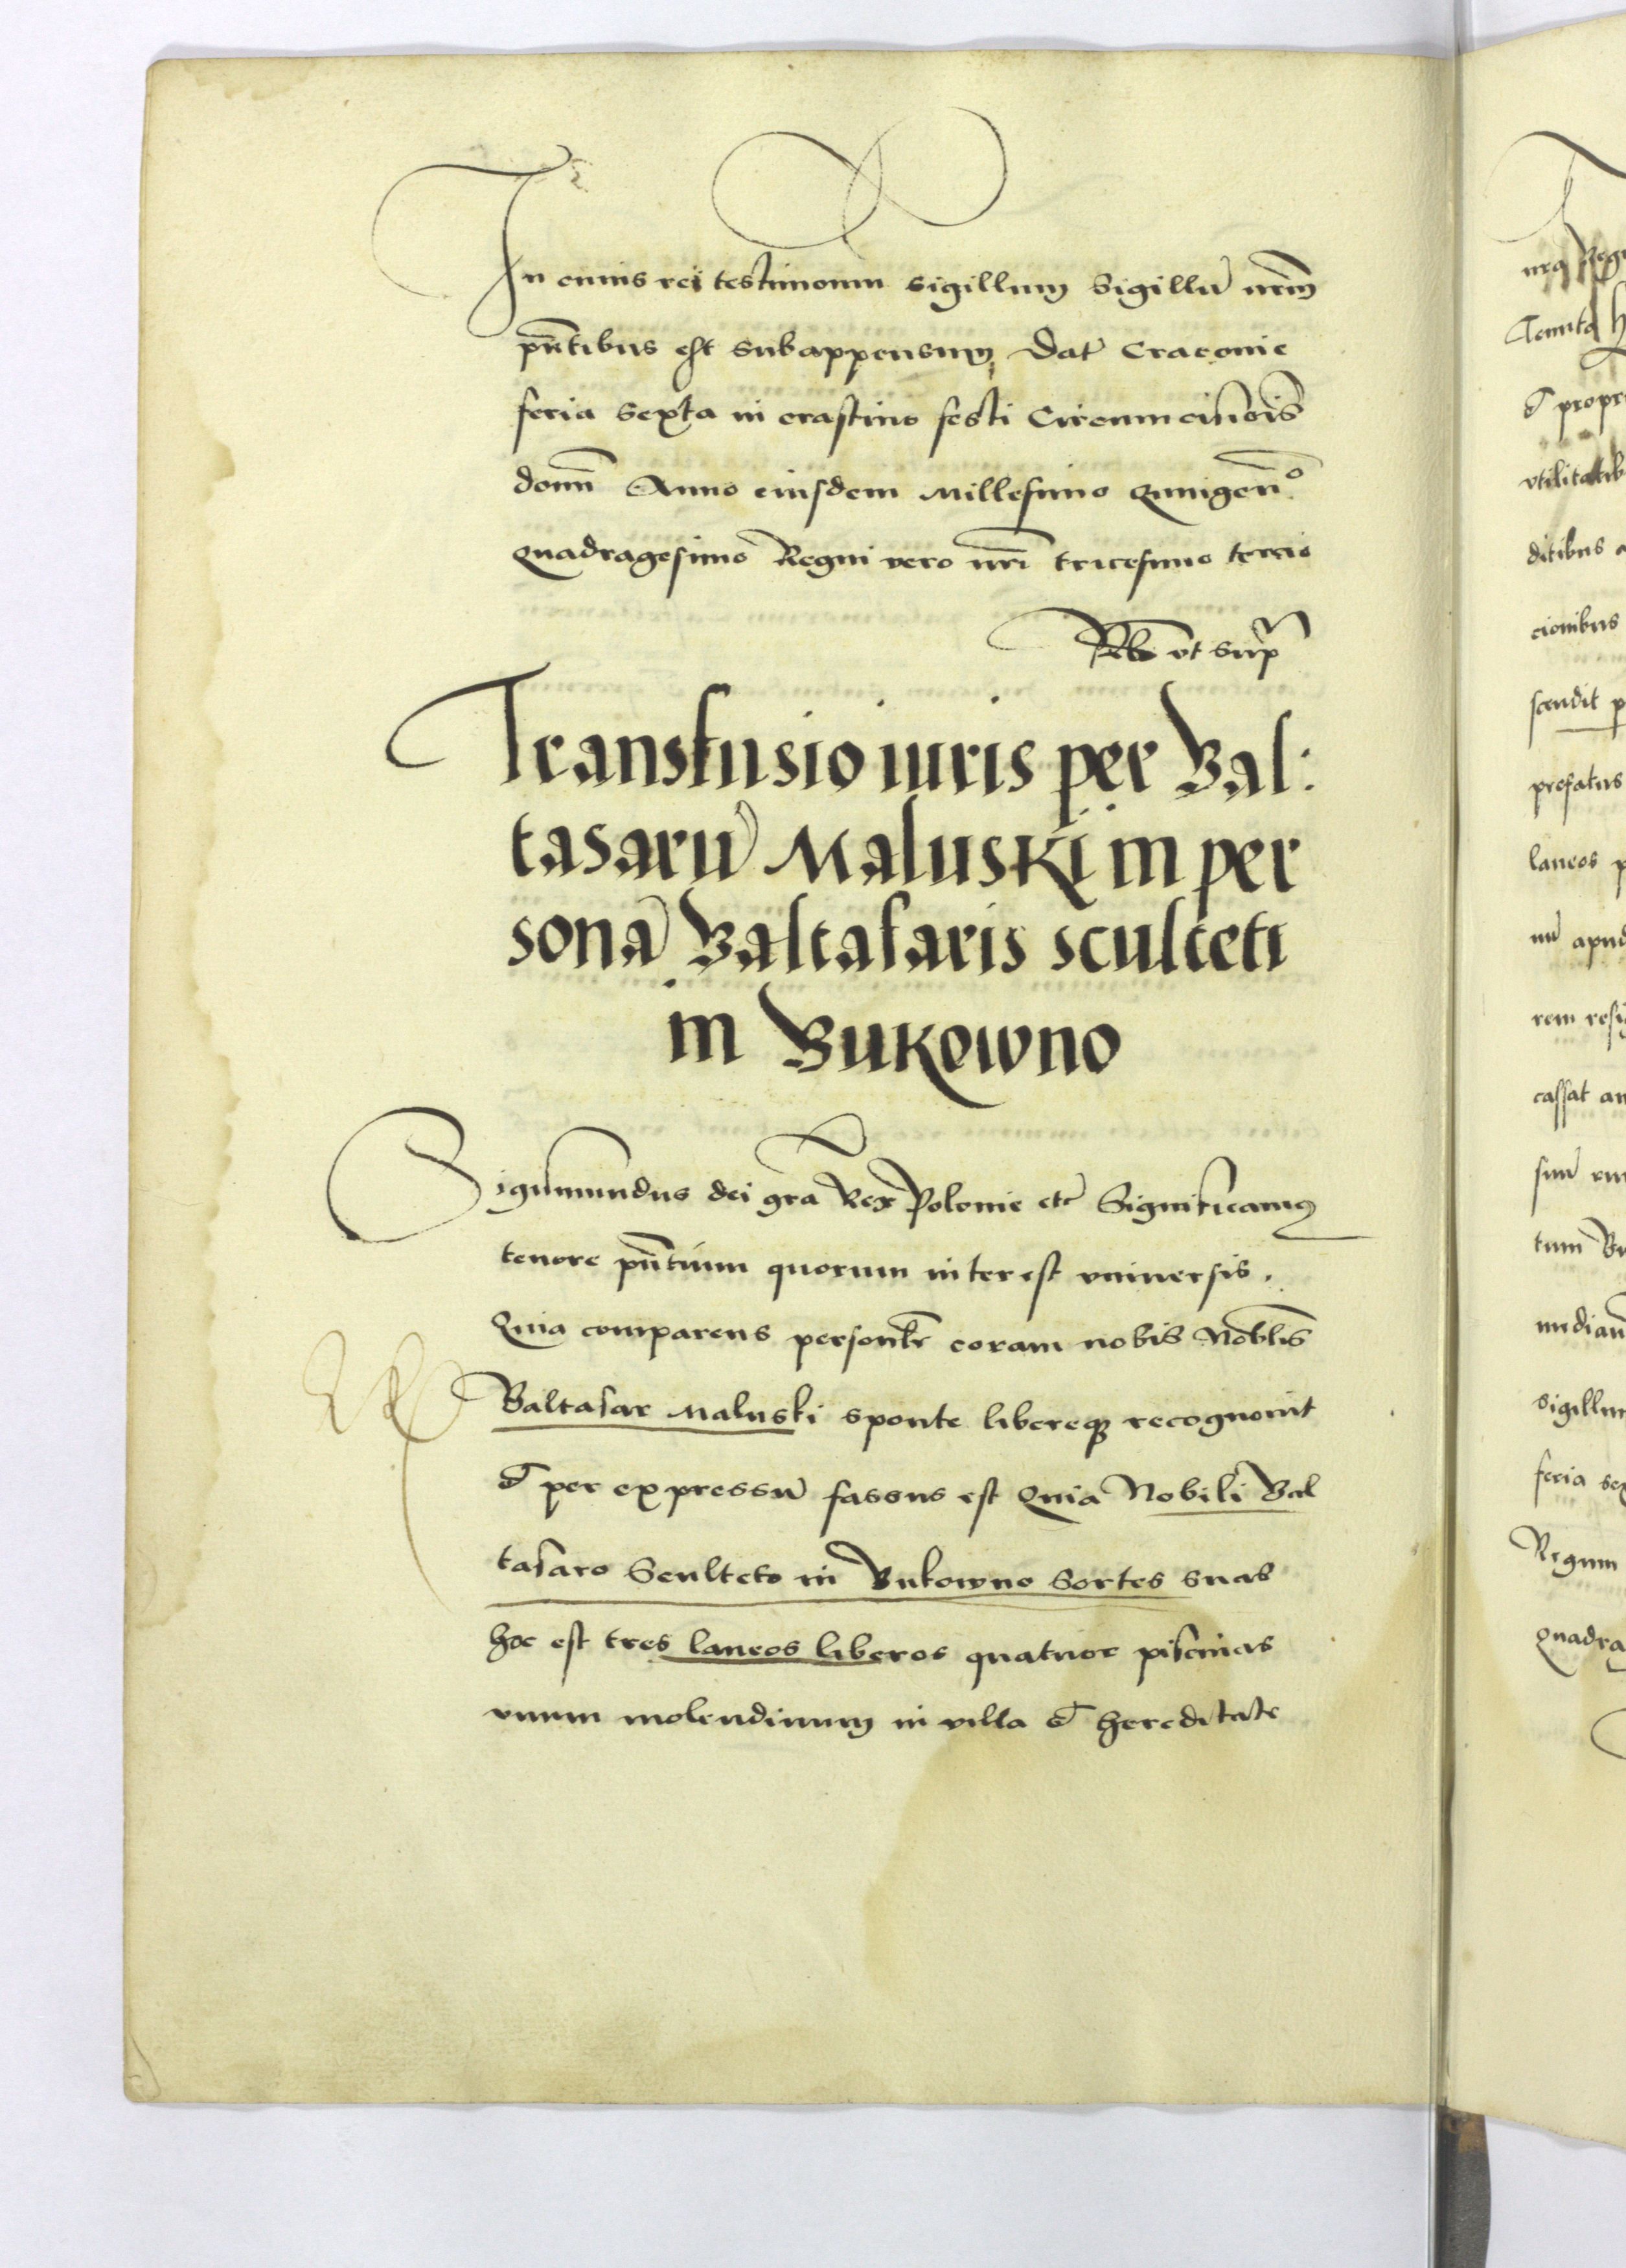 In cuius rei testimonium sigillum Sigillu͂ nr͂m
pn͂tibus est subappensum Dat͂ Cracouie
feria sexta in crastino festi Circumcisiois͂
domi͂ Anno eiusdem Millesimo Quingen͂º
Quadragesimo Regni vero nr͂i tricesimo tercio
Rb vt sup͂
Transfusio iuris per Bal:
tasaru͂ Maluski in per
sona͂ Baltasaris sculteti
in Bukowno
Sigismundus dei gr͂a Rex Polonie etc͂ Significamus
tenore pn͂tium quorum interest vniuersis.
Quia comparens personl͂r coram nobis Nobl͂is
Baltasar Maluski sponte libereq; recognouit
et per expressu͂ fassus est Quia Nobili Bal
tasaro Sculteto in Bukowno Sortes suas
hoc est tres laneos liberos quatuor piscinas
vnum molendinum in villa et hereditate
Tenuta
et propri
vtilitatib
ditibus a
cionibus
scendit p
prefatus
laneos p
nu͂ apud
rem resi
cassat an
tum Bu
sigillum
feria sex
Regnum
Quadra